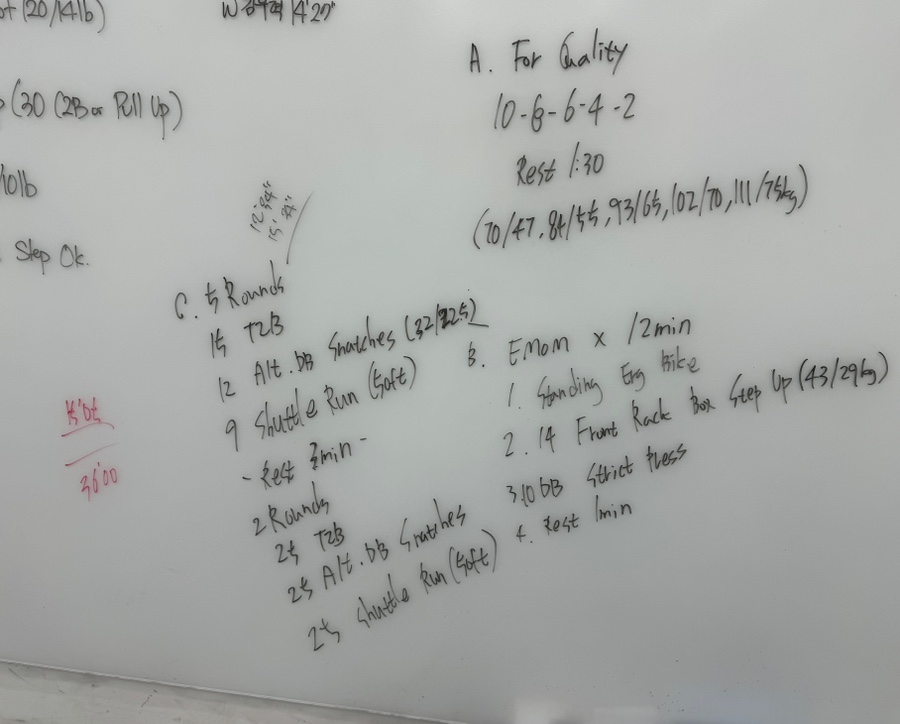 (20/14lb)
14'27"
(30 C2B or Pull Up)
/10lb
Step Ok.
A. For Quality
10-8-6-4-2
Rest 1:30
(70/47, 84/55, 93/65, 102/70, 111/75kg)
B. EMOM x 12min
1. Standing Erg Bike
2. 14 Front Rack Box Step Up (43/29kg)
3. 10 DB Strict Press
4. Rest 1min
C. 5 Rounds
15 T2B
12 Alt. DB Snatches (32/22.5)
9 Shuttle Run (50ft)
- Rest 3min -
2 Rounds
25 T2B
25 Alt. DB Snatches
25 Shuttle Run (50ft)
36'00